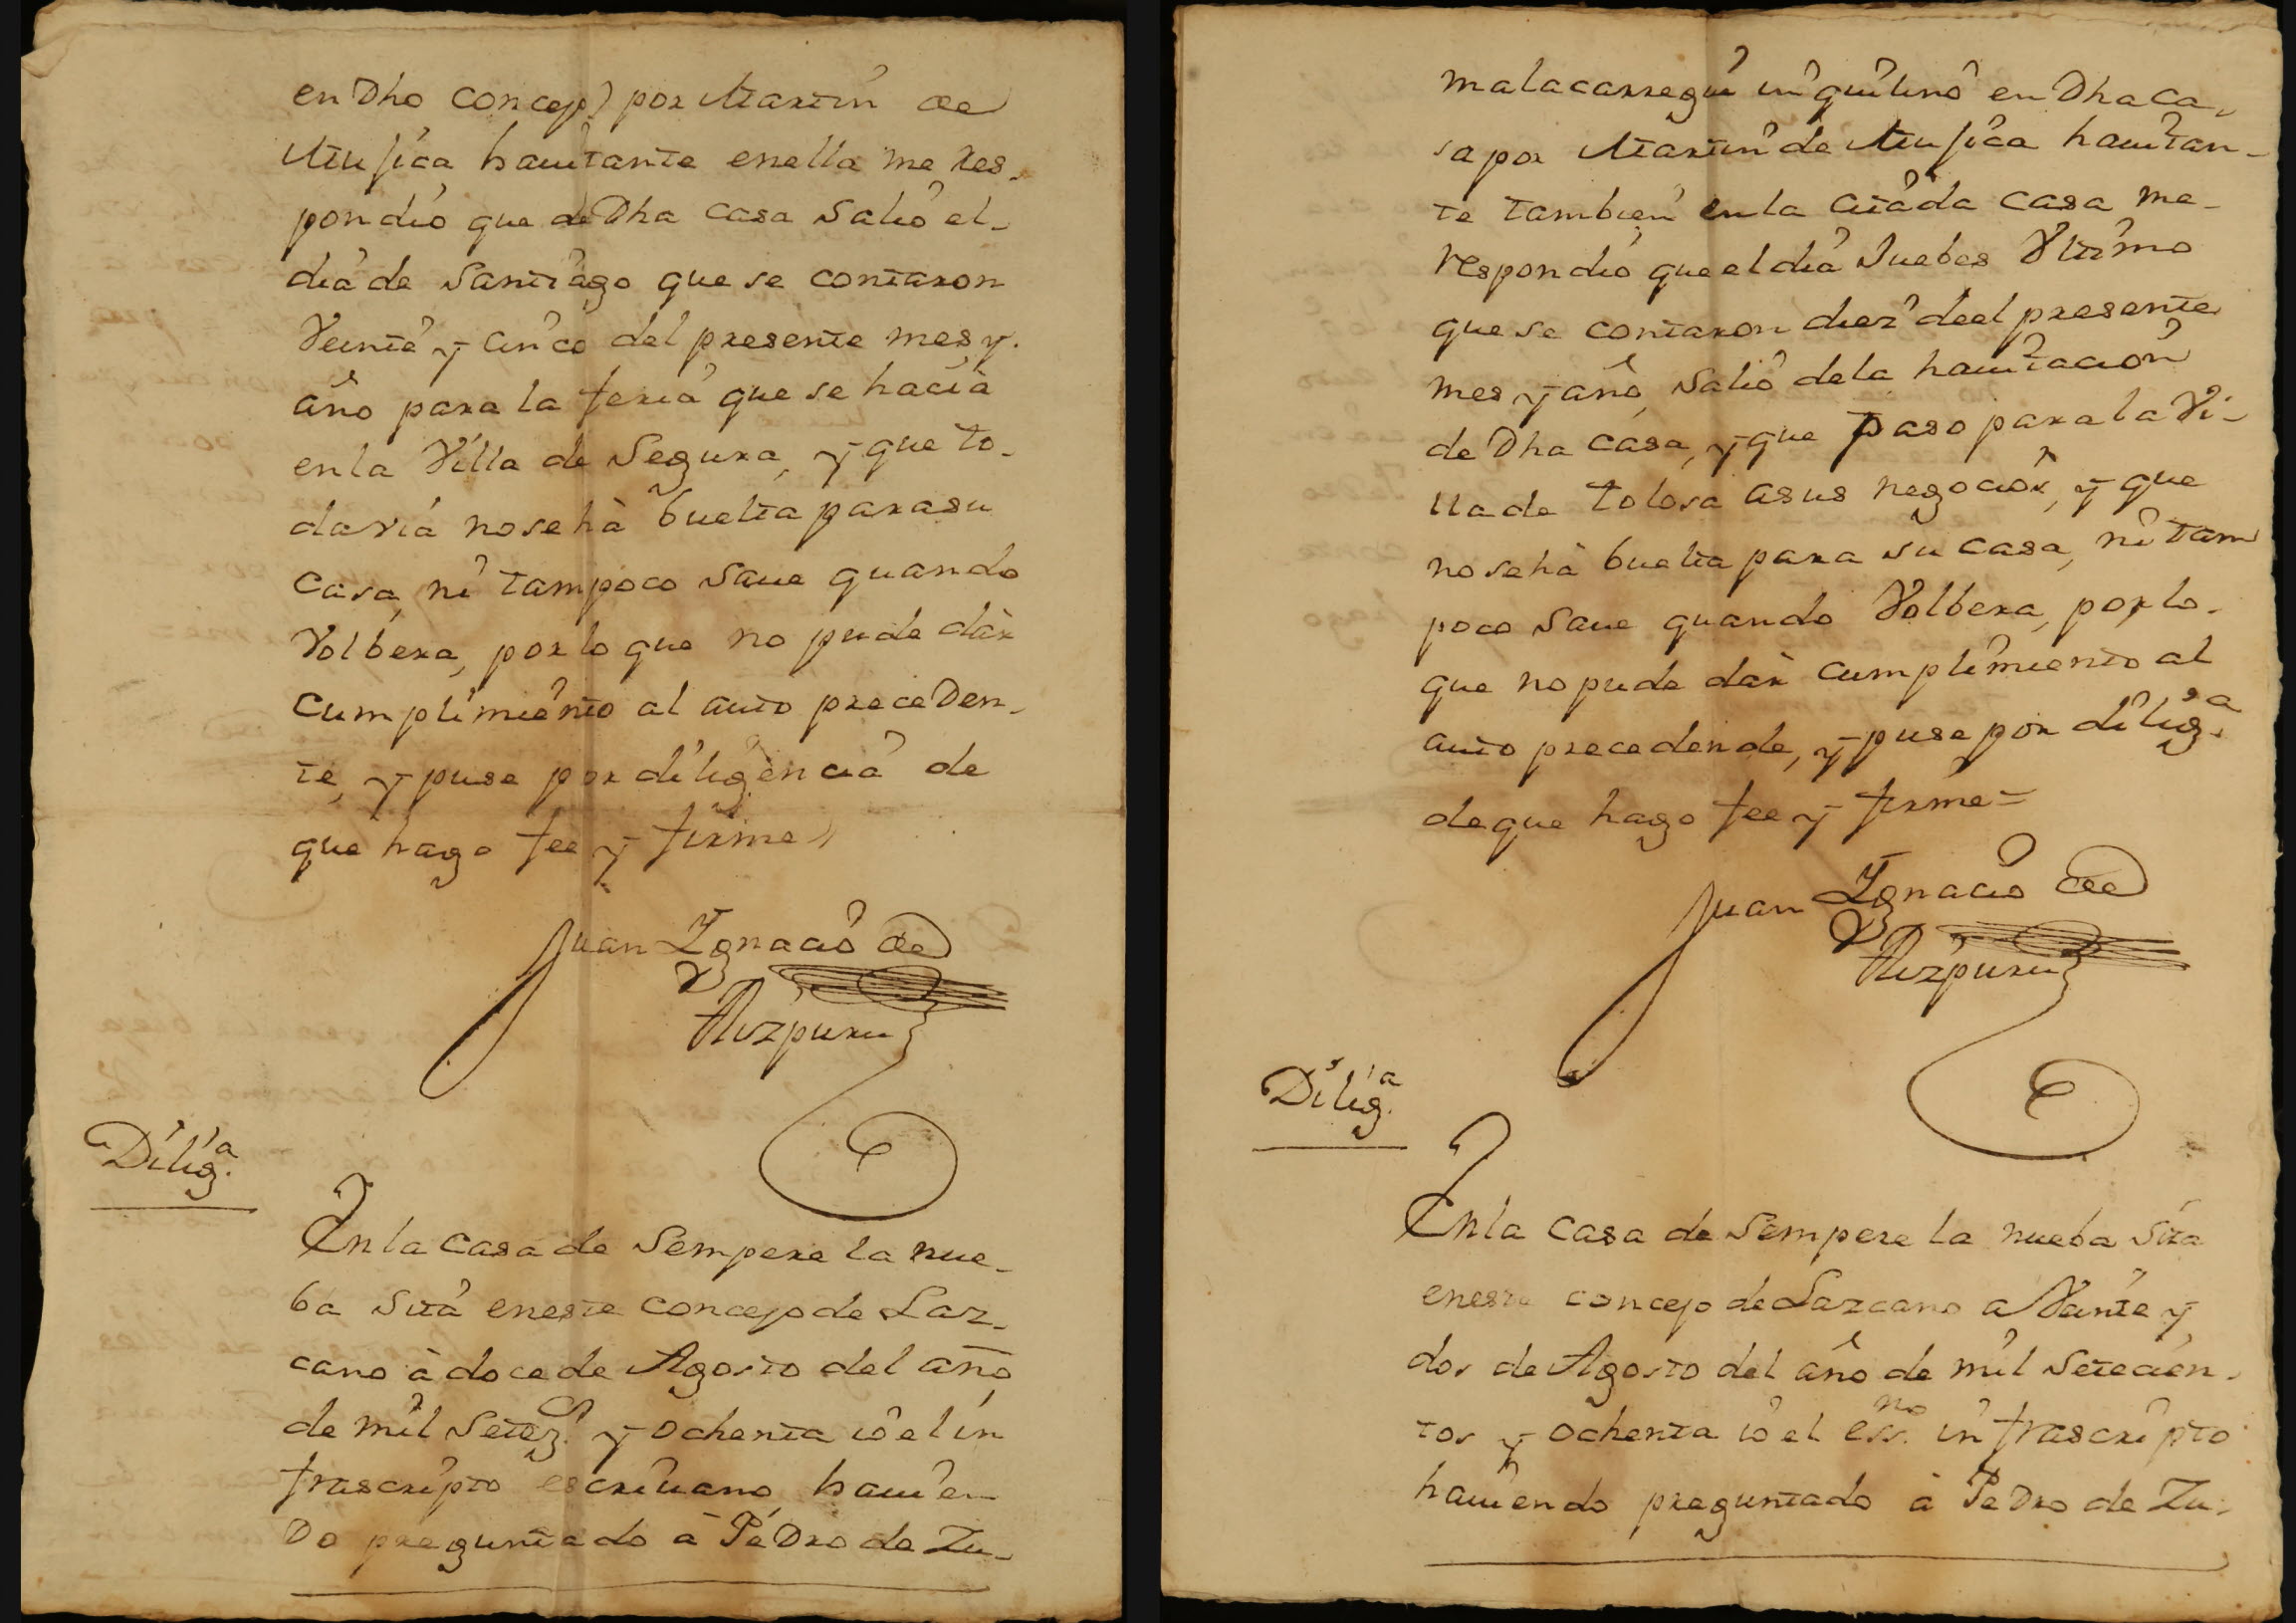 en Dho concejo por Martin de
Musica hauitante en ella me res-
pondio que de Dha casa Salio el
dia de Santiago que se contaron
Veinte y cinco del presente mes y
año para la feria que se hacia
en la Villa de Segura, y que to-
davia no se hà buelta para su
casa, ni tampoco Saue quando
Volbera, por lo que no pude dàr
cumplimiento al auto preceden-
te, y puse por diligencia de
que hago fee y firme
Juan Ygnacio de
Aizpuru
Dilig.ª
En la casa de Sempere la nue-
ba Sita en este concejo de Laz-
cano à doce de Agosto del año
de mil Setez.s y ochenta io el in
frascripto escriuano hauien
Do preguntado à Pedro de Zu-
malacarregui inquilino en Dha ca-
sa por Martin de Musica hauitan-
te tambien en la citada casa me
respondio que el dia Juebes Vltimo
que se contaron diez deel presente
mes y año, Salio de la hauitacion
de Dha casa, y que paso para la Vi-
lla de Tolosa a sus negocios, y que
no se hà buelta para su casa, ni tam
poco Saue quando Volbera, por lo
que no pude dàr cumplimiento al
auto precedende, y puse por dilig.ª
de que hago fee y firme=
Juan Ygnacio de
Aizpuru
Dilig.ª
En la casa de Sempere la nueba Sita
en este concejo de Lazcano a Veinte y
dos de Agosto del año de mil Setecien-
tos y ochenta io el ess.no infrascripto
hauiendo preguntado à Pedro de Zu-